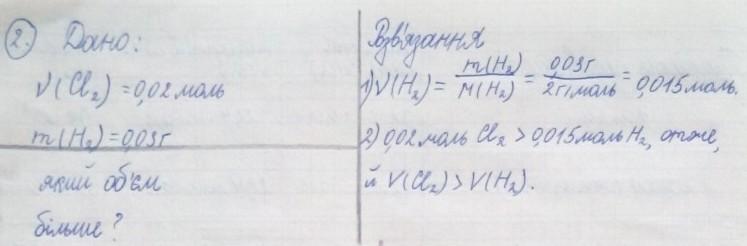 2. Дано:
ν(Cl₂) = 0,02 моль
m(H₂) = 0,03г
який об'єм
більше?
Розв'язання
1) ν(H₂) = m(H₂)/M(H₂) = 0,03г/2г/моль = 0,015моль.
2) 0,02 моль Cl₂ > 0,015 моль H₂, отже,
й V(Cl₂) > V(H₂).